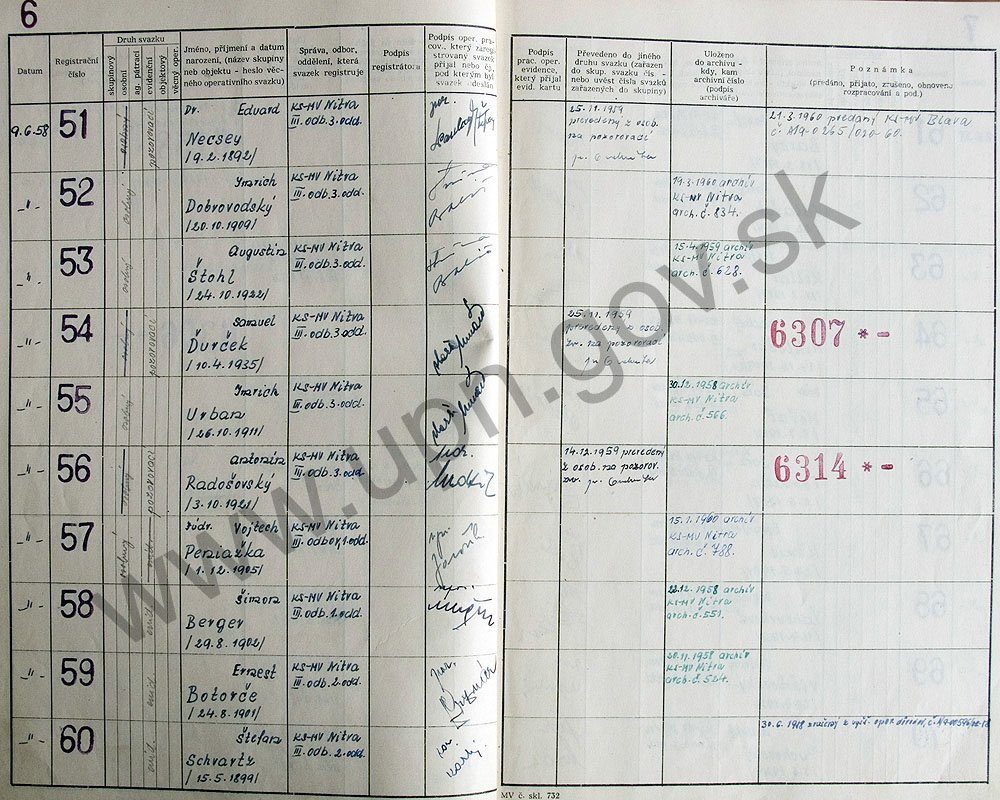 6
Datum
Registrační číslo
Druh svazku
skupinový
osobní
ag. pátrací
evidenční
objektový
věcný oper.
Jméno, příjmení a datum
narození, (název skupiny
neb objektu - heslo věc-
ného operativního svazku)
Správa, odbor,
oddělení, která
svazek registruje
Podpis
registrátora
Podpis oper. pra-
cov., který zareg.
strovaný svazek
přijal neb čj.
pod kterým byl
svazek odeslán
Podpis
prac. oper.
evidence,
který přijal
evid. kartu
Převedeno do jiného
druhu svazku (zařazen
do skup. svazku čís. -
nebo uvést čísla svazků
zařazených do skupiny)
Uloženo
do archivu -
kdy, kam
archivní číslo
(podpis
archiváře)
Poznámka
(předáno, přijato, zrušeno, obnoveno
rozpracování a pod.)
9.6.58 51 Dr. Eduard
Necsey
/9.2.1892/
KS-MV Nitra
III. odb. 3. odd.
pozorovací
25.11.1959
prevedený z osob.
na pozorovací
21.3.1960 predaný KS-MV Blava
-"- 52 osobný
Imrich
Dobrovodský
/20.10.1909/
KS-MV Nitra
III. odb. 3. odd.
19.3.1960 archív
KS-MV Nitra
arch. č. 834.
-"- 53 osobný
Augustín
Štohl
/24.10.1922/
KS-MV Nitra
III. odb. 3. odd.
15.4.1959 archív
KS-MV Nitra
arch. č. 628.
-"- 54 osobný
Samuel
Ďurček
/10.4.1935/
KS-MV Nitra
III. odb. 3. odd.
pozorovací
25.11.1959
prevedený z osob.
zv. na pozorovací
6307 * -
-"- 55 osobný
Imrich
Urban
/26.10.1911/
KS-MV Nitra
III. odb. 3. odd.
30.12.1958 archív
KS-MV Nitra
arch. č. 566.
-"- 56 osobný
Antonín
Radošovský
/3.10.1921/
KS-MV Nitra
III. odb. 3. odd.
pozorovací
14.12.1959 prevedený
z osob. na pozorov.
6314 * -
-"- 57 osobný
Vojtech
Peniažka
/1.12.1905/
KS-MV Nitra
III. odbor, 1. odd.
15.1.1960 archív
KS-MV Nitra
arch. č. 788.
-"- 58 evid.
Šimon
Berger
/29.8.1902/
KS-MV Nitra
III. odb. 2. odd.
22.12.1958 archív
KS-MV Nitra
arch. č. 551.
-"- 59 evid.
Ernest
Botorče
/24.8.1901/
KS-MV Nitra
III. odb. 2. odd.
20.11.1958 archív
KS-MV Nitra
arch. č. 524.
-"- 60 evid.
Štefan
Schvartz
/15.5.1899/
KS-MV Nitra
III. odb. 2. odd.
MV č. skl. 732
www.upn.gov.sk